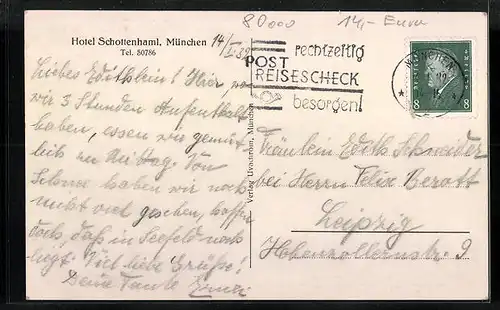 80000
14,- Euro
Hotel Schottenhaml, München
Tel. 80786
14/I.32
rechtzeitig
POST
REISESCHECK
besorgen!
MÜNCHEN
8 8
Liebes Edithlein! Hier, wo
wir 3 Stunden Aufenthalt
haben, essen wir gemüt-
lich zu Mittag. Von
Schnee haben wir noch
nicht viel gesehen, hoffen
doch, daß in Seefeld noch
liegt. Viel liebe Grüße!
Deine Tante
Verlag Uvonstein, München
Fräulein Edith Schneider
bei Herrn Felix Berott
Leipzig
Hohenzollernstr. 9